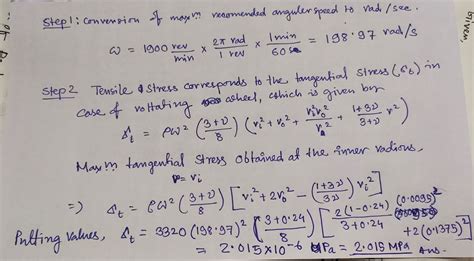 Step 1: conversion of maxm recomended angular speed to rad/sec.
ω = 1900 rev/min × 2π rad/1 rev × 1 min/60 s = 198.97 rad/s
Step 2 Tensile stress corresponds to the tangential stress (σt) in
case of rotating wheel, which is given by
σt = ρω² (3+ν/8) (ri² + ro² + ri²ro²/r² + 1+3ν/3+ν r²)
Maxm tangential stress obtained at the inner radious,
r = ri
⇒ σt = ρω² (3+ν/8) [ri² + 2ro² - (1+3ν/3ν) ri²]
Putting values, σt = 3320 (198.97)² (3+0.24/8) [2(1-0.24)/3+0.24 (0.0095)² + 2(0.1375)²]
= 2.015×10-6 Pa = 2.015 MPa Ans.